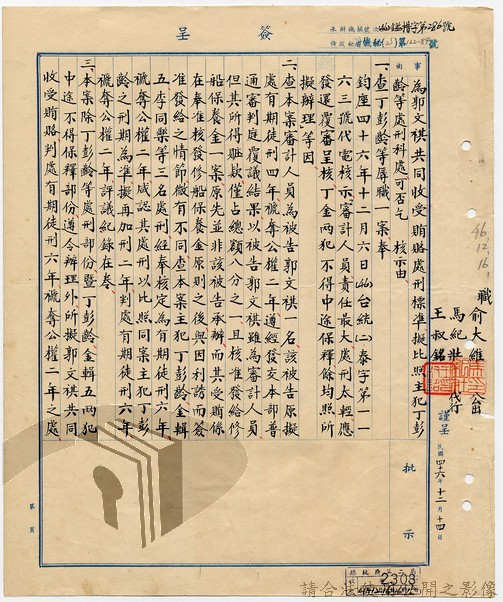 簽呈
承辦機構號次 (46)鑑措字第286號
為郭文祺共同收受賄賂處刑標準擬比照主犯丁彭
齡等處刑科處可否乞 核示由
一、查丁彭齡等屏職一案奉
鈞座四十六年十二月六日(46)台統(二)泰字第一一
六三號代電核示審計人員責任最大處刑太輕應
發還覆審呈核丁金兩犯不得中途保釋餘均照所
擬辦理等因
二、查本案審計人員為被告郭文祺一名該被告原擬
處有期徒刑四年褫奪公權二年遵經發交本部普
通審判庭覆議結果以被告郭文祺雖為審計人員
但其所得賍款僅占總額八分之一且核准發給修
船保養金一案原先並非該被告承辦而其受賄係
在奉准核發修船保養金原則之後與因利誘而簽
准發給之情節微有不同查本案主犯丁彭齡金輯
五李同樂等三名處刑經奉核定為有期徒刑六年
褫奪公權二年咸認共處刑以比照同案主犯丁彭
齡之刑期為準擬再加刑二年判處有期徒刑六年
褫奪公權二年評議紀錄在卷
三、本案除丁彭齡等處刑部份暨丁彭齡金輯五兩犯
中途不得保釋部份遵令辦理外所擬郭文祺共同
收受賄賂判處有期徒刑六年褫奪公權二年之處
職
俞大維
馬紀壯
王叔銘
代行
謹呈
民國四十六年十二月十四日
46.12.16.
批示
第 頁
2308
請合法使用公開之影像